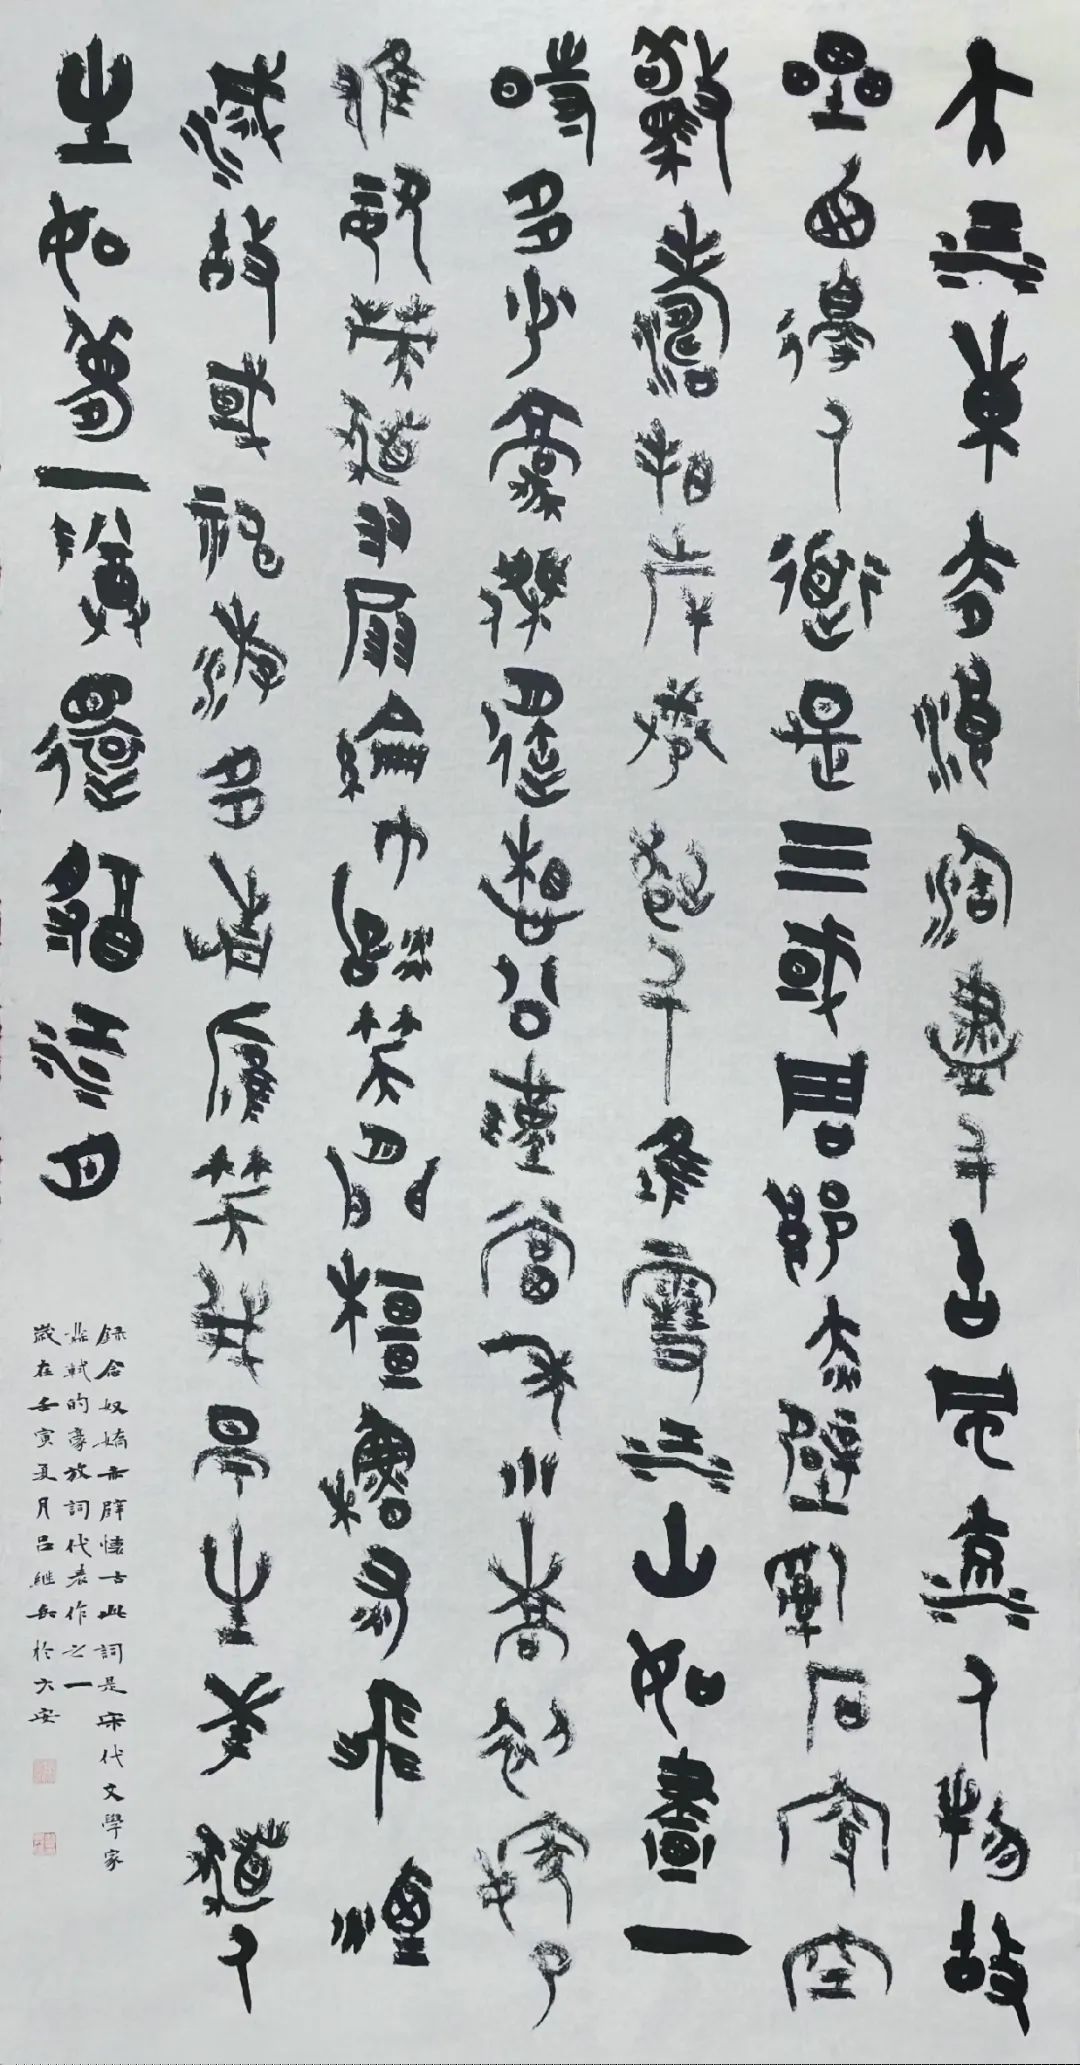 大江東去浪淘盡千古風流人物故
壘西邊人道是三國周郎赤壁亂石穿空
驚濤拍岸捲起千堆雪江山如畫一
時多少豪傑遙想公瑾當年小喬初嫁了
雄姿英發羽扇綸巾談笑間檣櫓灰飛煙
滅故國神游多情應笑我早生華髮人
生如夢一尊還酹江月
錄念奴嬌赤壁懷古此詞是宋代文學家
蘇軾的豪放詞代表作之一
歲在壬寅夏月呂繼於六安